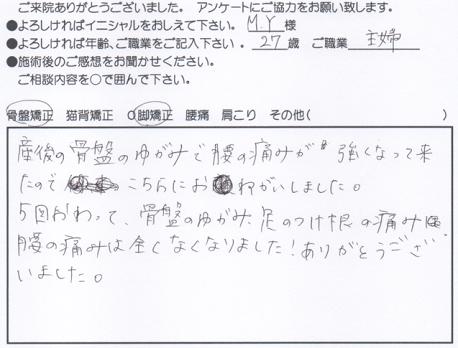 ご来院ありがとうございました。 アンケートにご協力をお願い致します。
●よろしければイニシャルをおしえて下さい。 M.Y 様
●よろしければ年齢、ご職業をご記入下さい。 27 歳 ご職業 主婦
●施術後のご感想をお聞かせください。
ご相談内容を○で囲んで下さい。
骨盤矯正 猫背矯正 O脚矯正 腰痛 肩こり その他( )
産後の骨盤のゆがみで腰の痛みが強くなって来
たので こちらにおねがいしました。
5回おわって、骨盤のゆがみ足のつけ根の痛み
腰の痛みは全くなくなりました!ありがとうござ
いました。